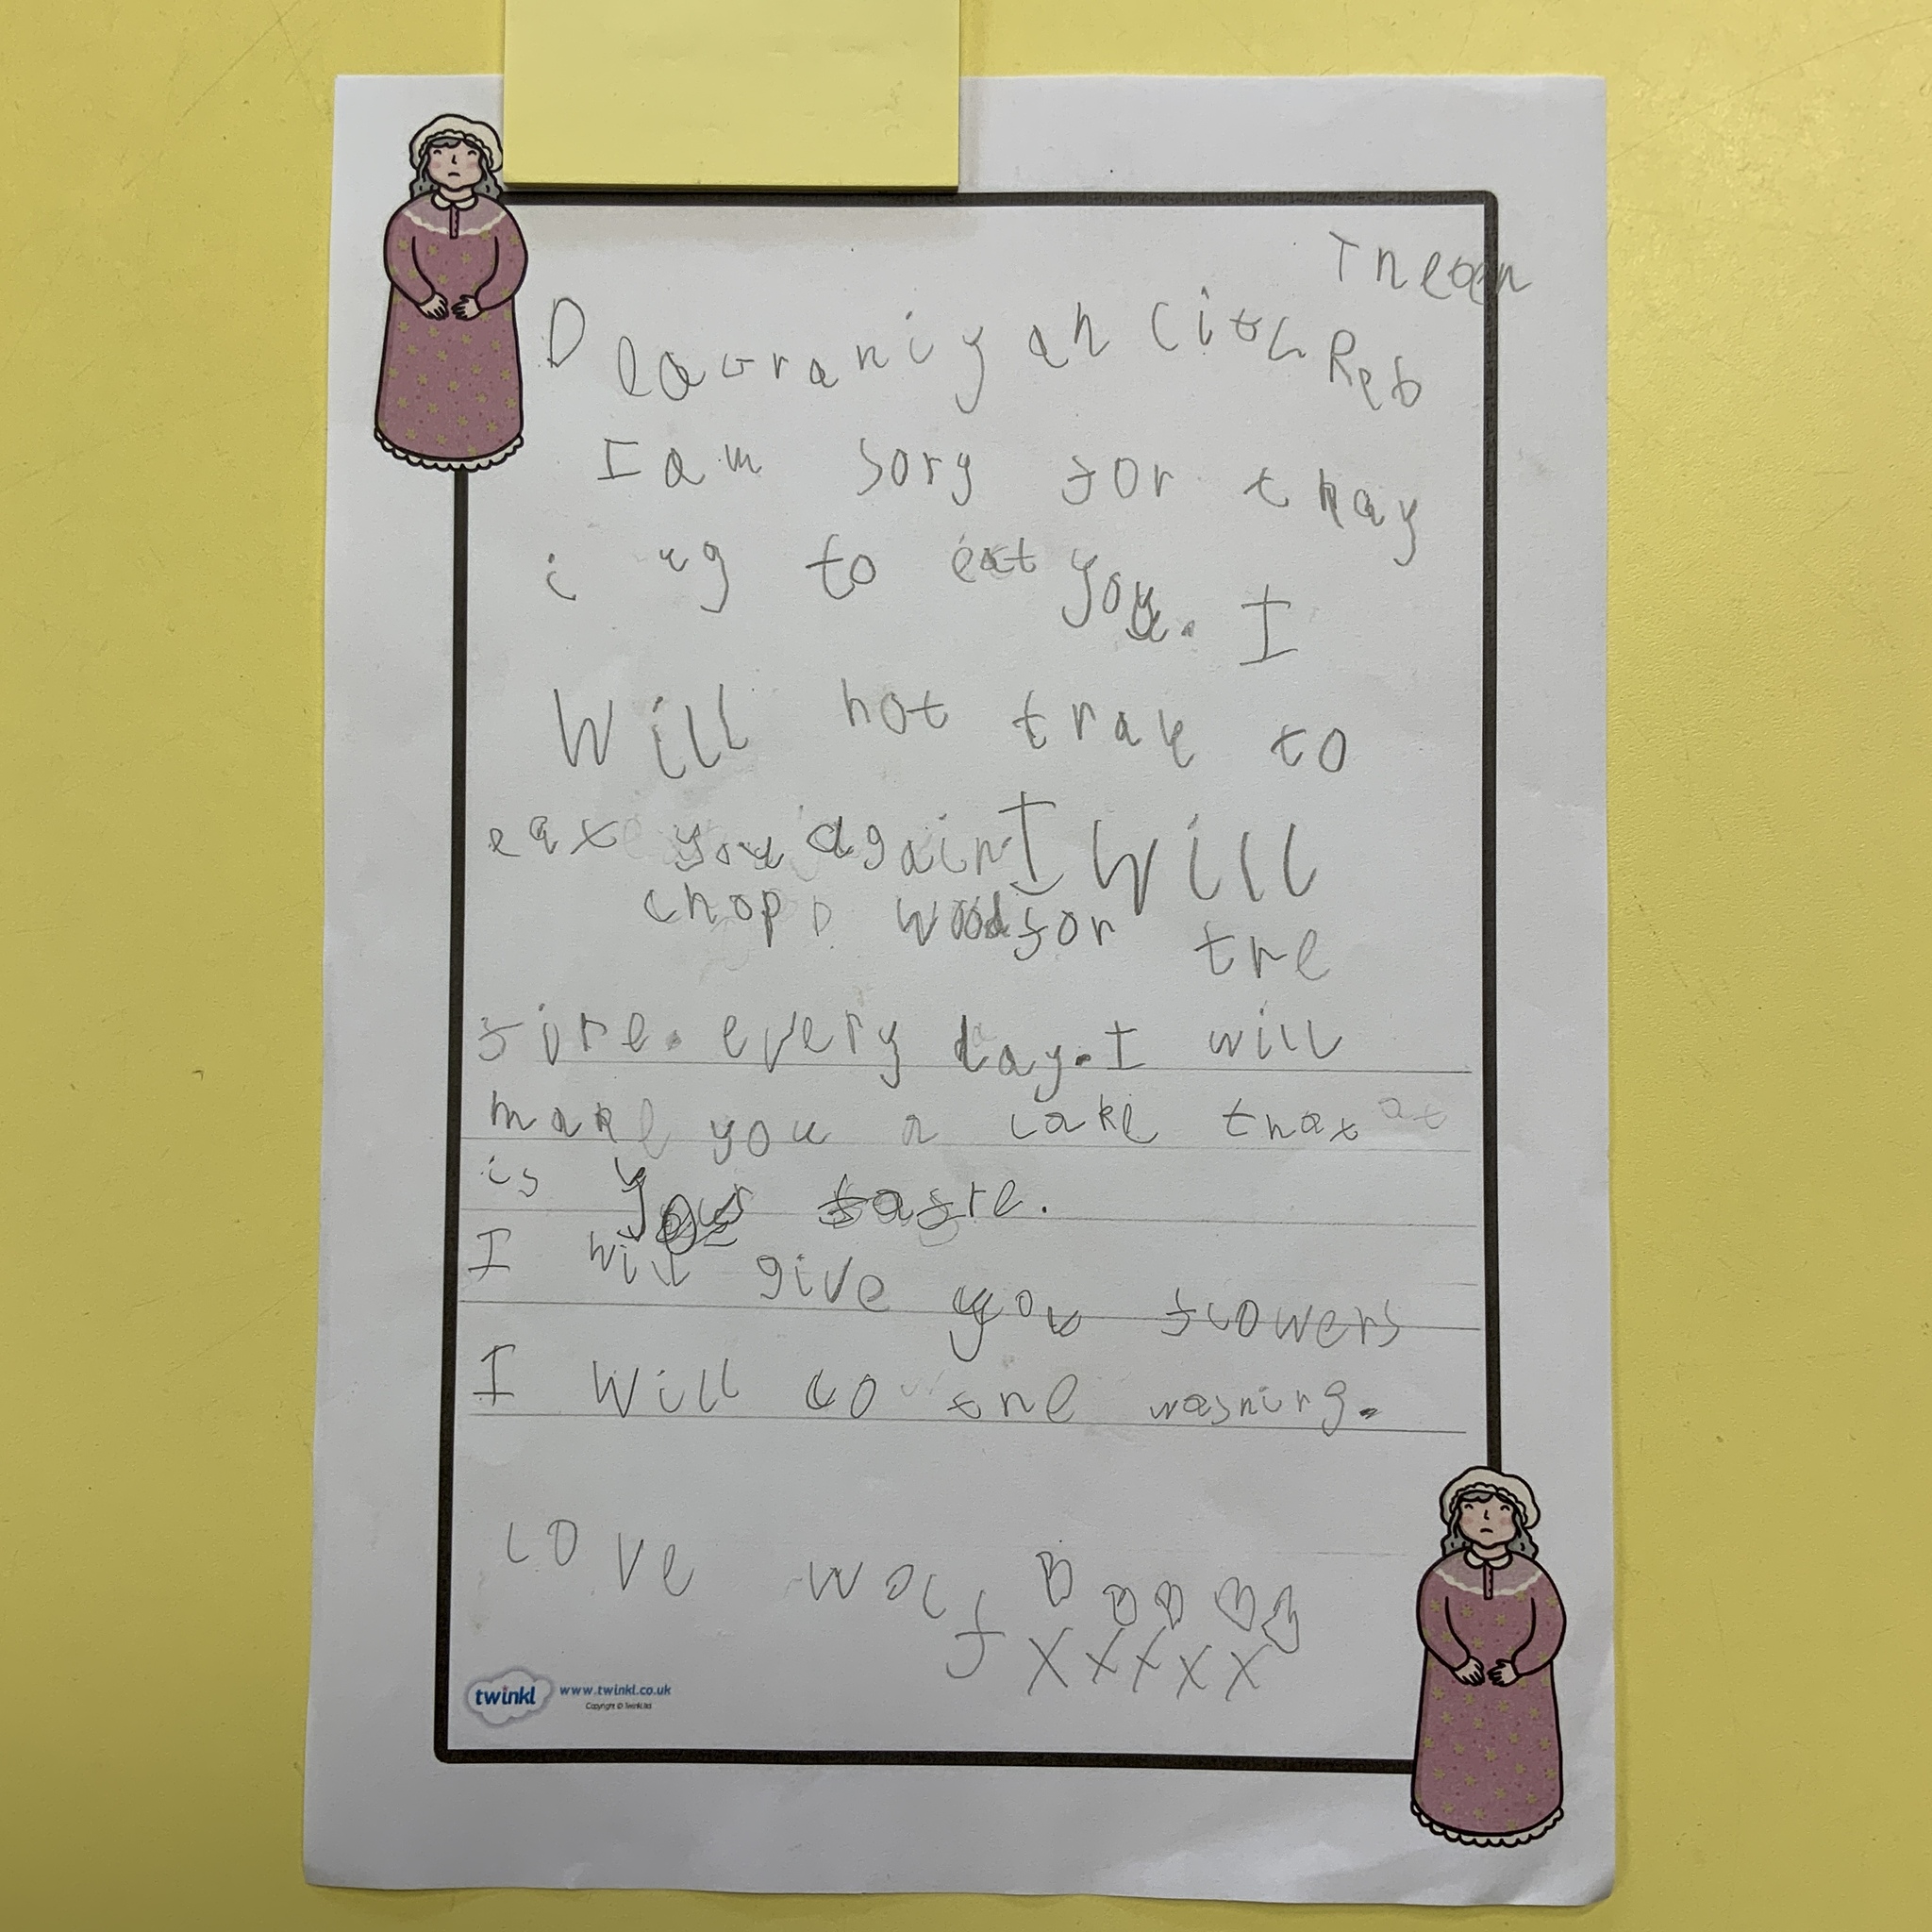 Dea graniy an Litl Red
I am sory for thay
i ng to eat you. I
Will not tray to
eat you again I Will
chop wood for the
fire. every day. I will
make you a cake that
is your fasre.
I will give you flowers
I Will do the washing.
Love wolf
xxxxx
twinkl www.twinkl.co.uk
Copyright © Twinkl ltd